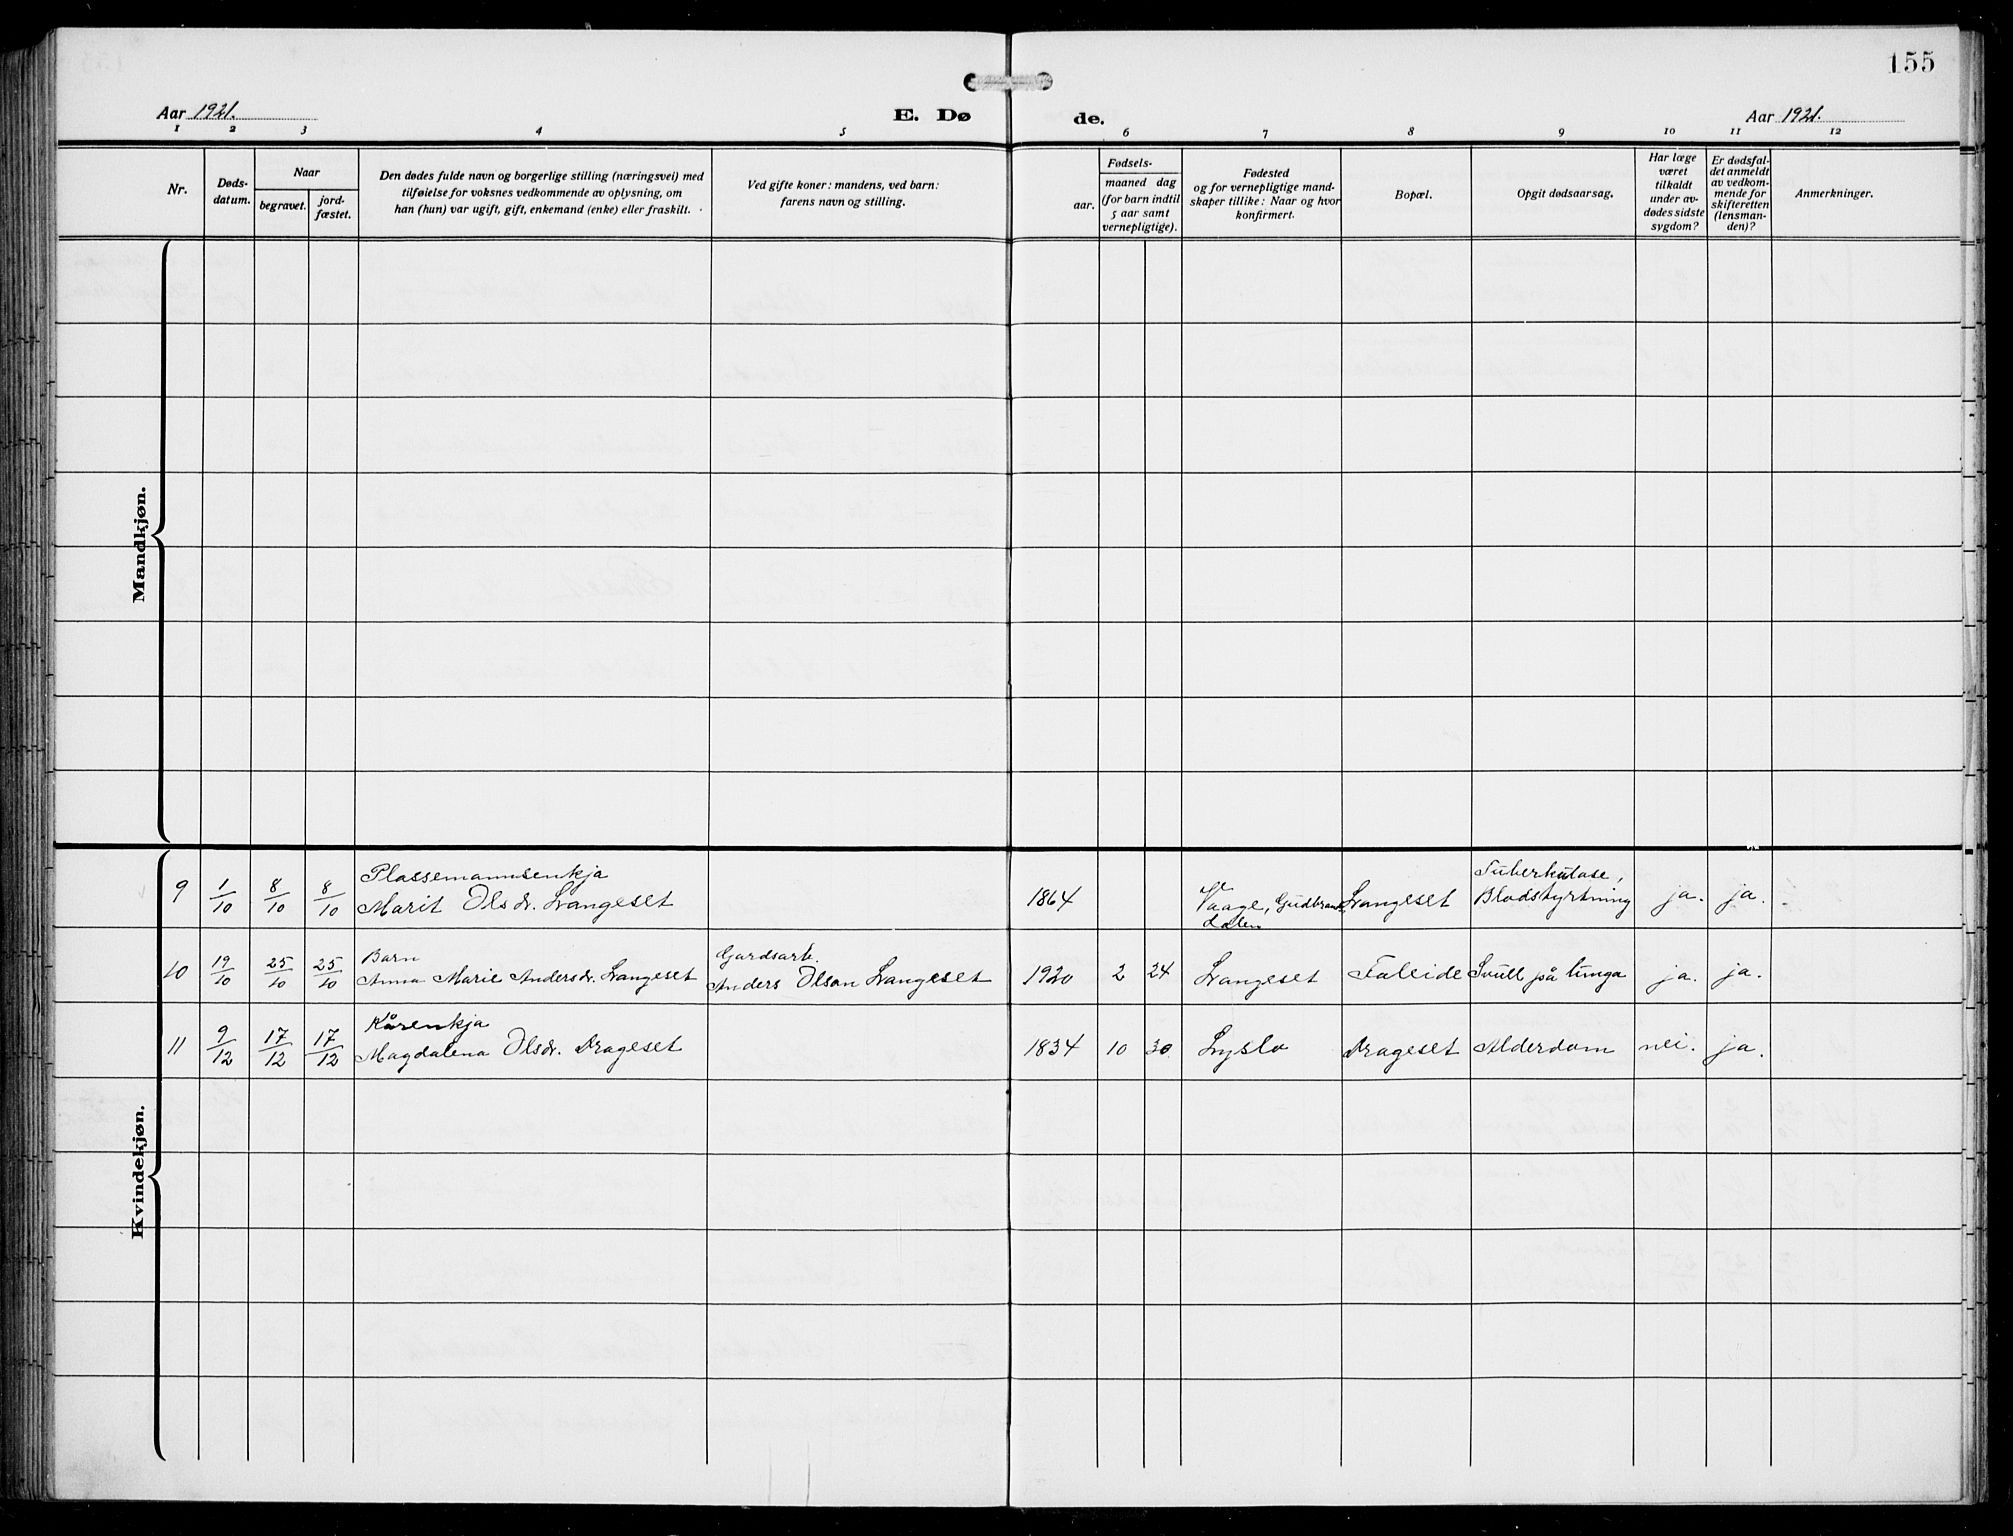 155
Aar 1921.
E. Dø
de.
Aar 1921.
1 2 3 4 5 6 7 8 9 10 11 12
Nr.
Døds-
datum.
Naar
begravet.
jord-
fæstet.
Den dødes fulde navn og borgerlige stilling (næringsvei) med
tilføielse for voksnes vedkommende av oplysning, om
han (hun) var ugift, gift, enkemand (enke) eller fraskilt.
Ved gifte koner: mandens, ved barn:
farens navn og stilling.
Fødsels-
aar.
maaned dag
(for barn indtil
5 aar samt
vernepligtige).
Fødested
og for vernepligtige mand-
skaper tillike: Naar og hvor
konfirmert.
Bopæl.
Opgit dødsaarsag.
Har læge
været
tilkaldt
under av-
dødes sidste
sygdom?
Er dødsfal-
det anmeldt
av vedkom-
mende for
skifteretten
(lensman-
den)?
Anmerkninger.
Mandkjøn.
Kvindekjøn.
9 1/10 8/10 8/10 Plassemannsenkja
Marit Olsdr. Langeset 1864 Vaage, Gudbrands
dalen Langeset Tuberkulose,
Blodstyrtning ja. ja.
10 19/10 25/10 25/10 Barn
Anna Marie Andersdr. Langeset Gardsarb.
Anders Olson Langeset 1920 2 24 Langeset Faleide Svull på lunga ja. ja.
11 9/12 17/12 17/12 Kårenkja
Magdalena Olsdr. Drageset 1834 10 30 Lyslo Drageset Alderdom nei. ja.